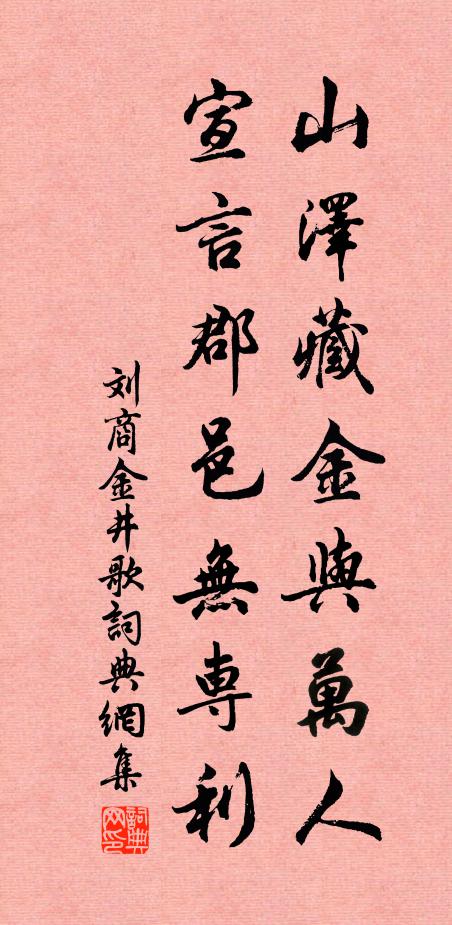 山澤藏金與萬人
宣言郡邑無專利
刘商金井歌詞典網集
詞典网印